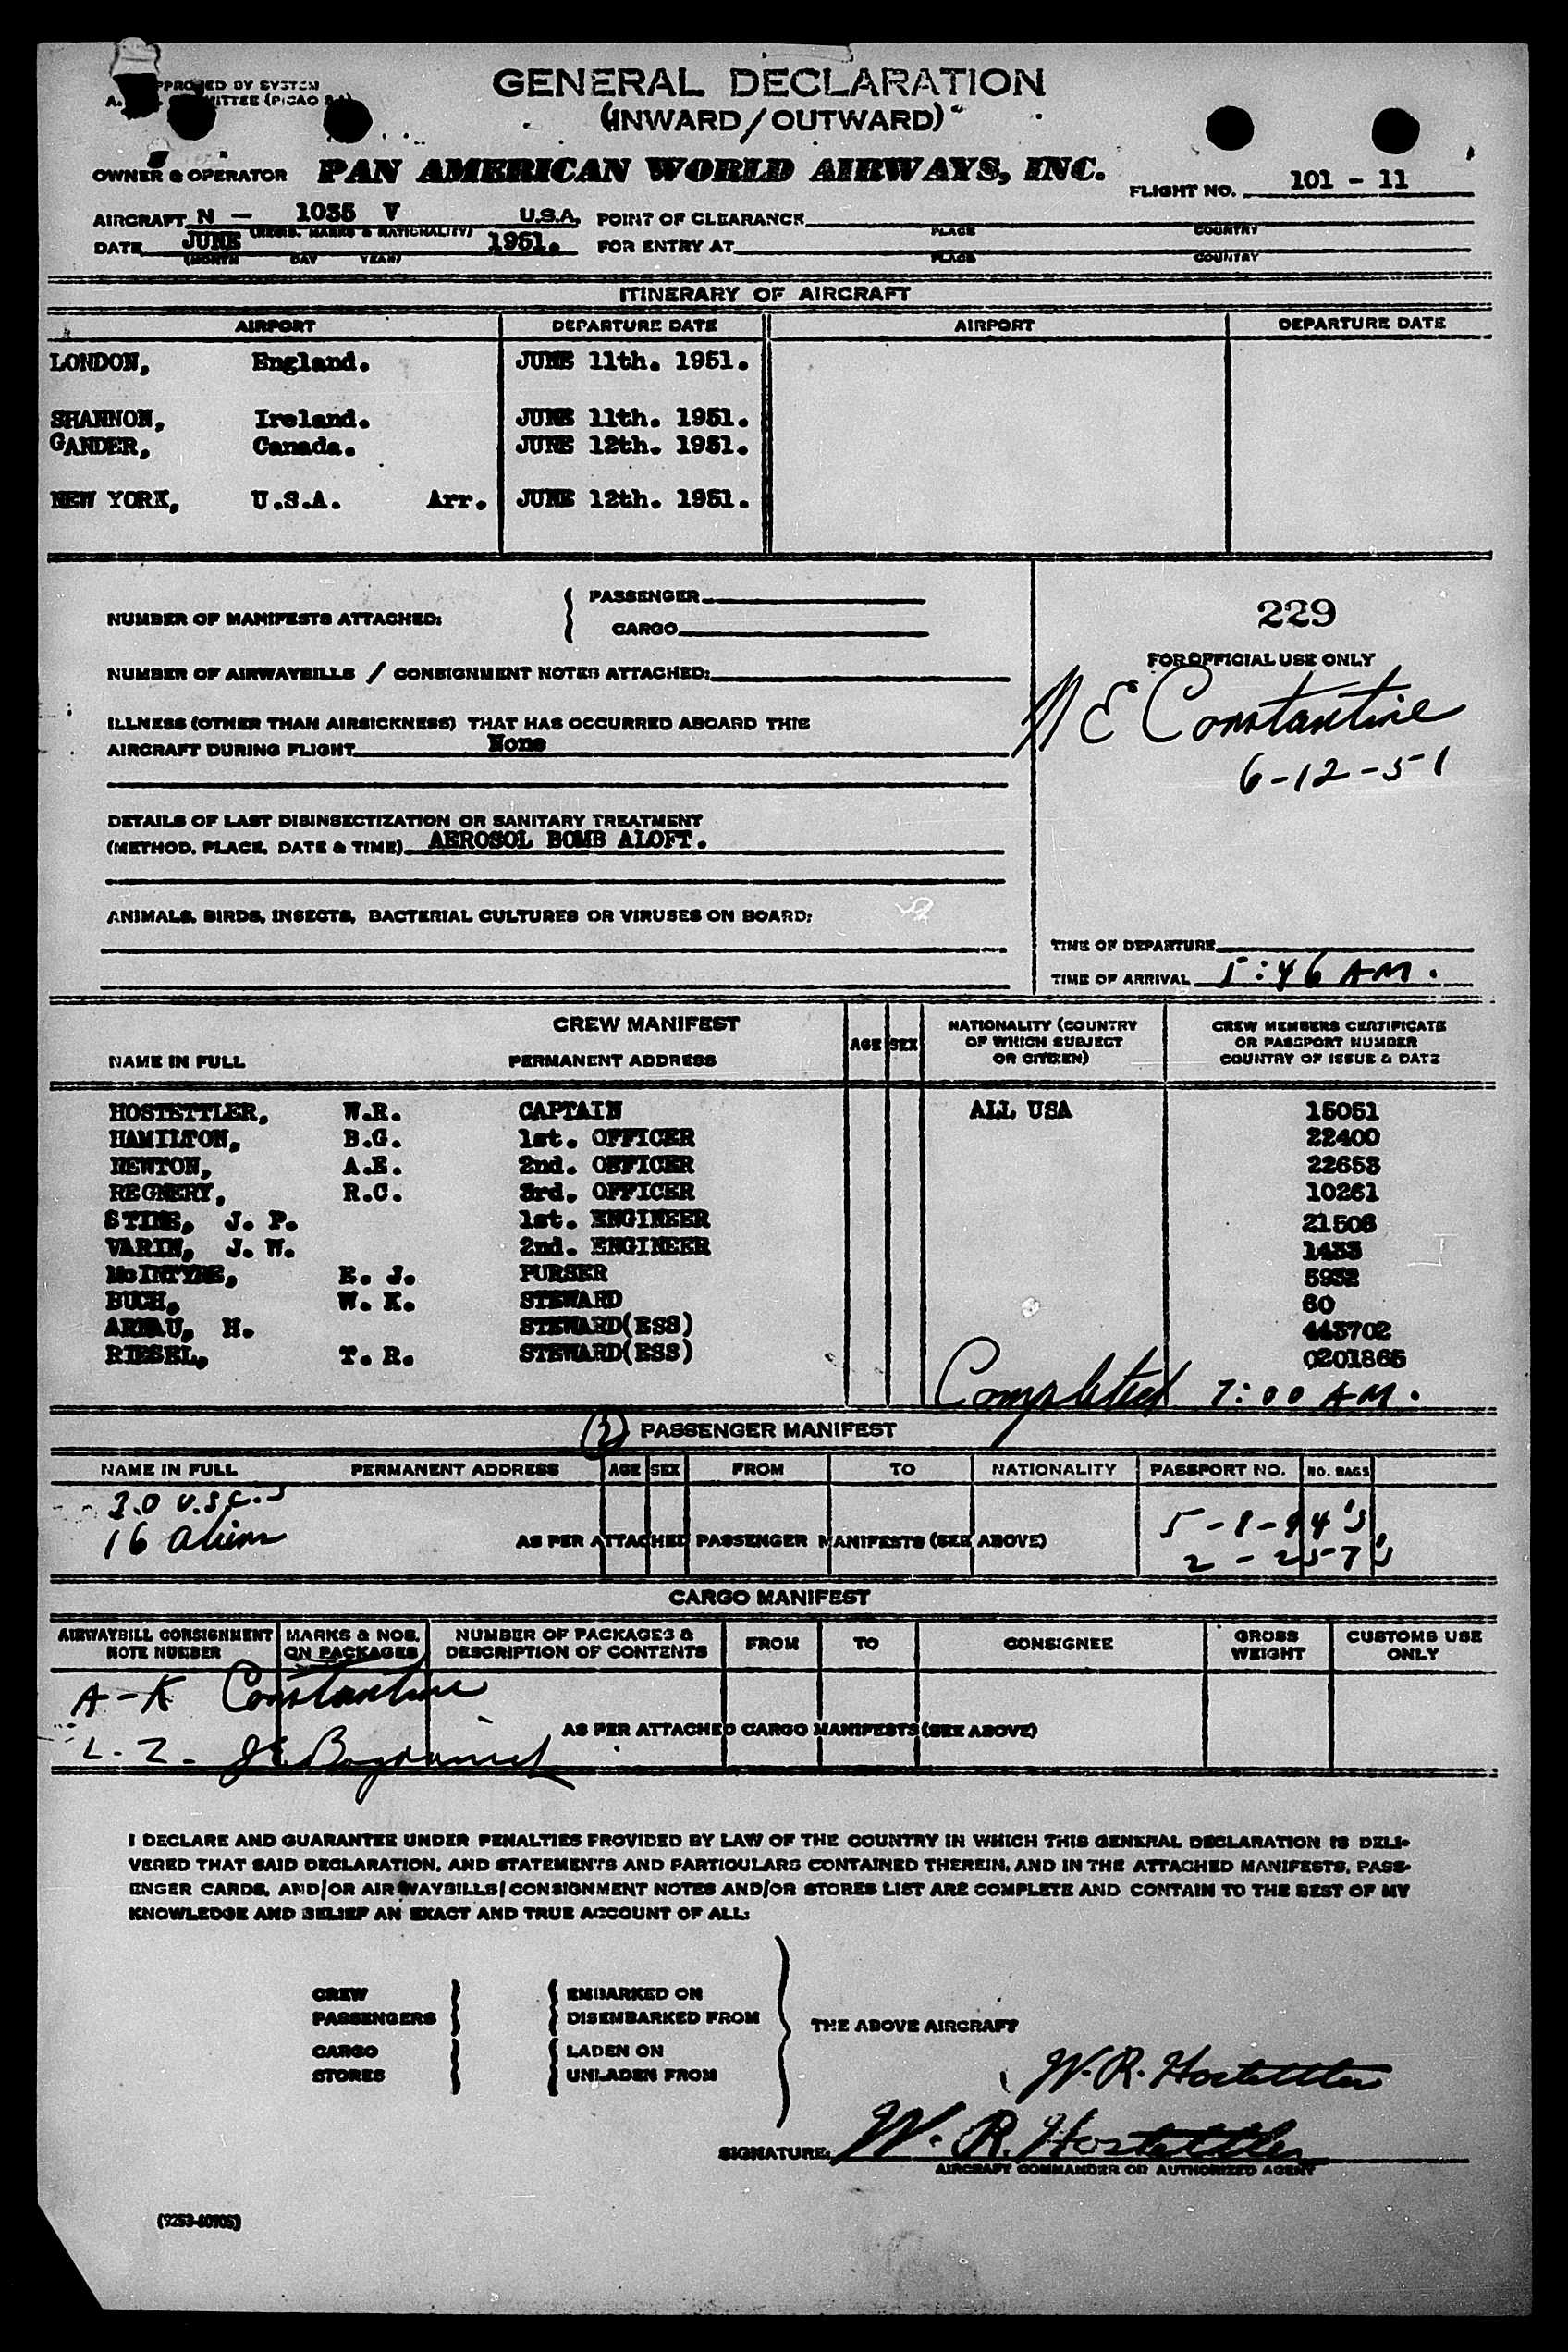 GENERAL DECLARATION
(INWARD/OUTWARD)
OWNER & OPERATOR PAN AMERICAN WORLD AIRWAYS, INC. FLIGHT NO. 101 - 11
AIRCRAFT N - 1035 V U.S.A. POINT OF CLEARANCE
(REGIS. MARKS & NATIONALITY) PLACE COUNTRY
DATE JUNE 1951. FOR ENTRY AT
(MONTH DAY YEAR) PLACE COUNTRY
ITINERARY OF AIRCRAFT
AIRPORT DEPARTURE DATE AIRPORT DEPARTURE DATE
LONDON, England. JUNE 11th. 1951.
SHANNON, Ireland. JUNE 11th. 1951.
GANDER, Canada. JUNE 12th. 1951.
NEW YORK, U.S.A. Arr. JUNE 12th. 1951.
NUMBER OF MANIFESTS ATTACHED: PASSENGER
CARGO
229
FOR OFFICIAL USE ONLY
NUMBER OF AIRWAYBILLS / CONSIGNMENT NOTES ATTACHED:
E Constantine
6-12-51
ILLNESS (OTHER THAN AIRSICKNESS) THAT HAS OCCURRED ABOARD THIS
AIRCRAFT DURING FLIGHT None
DETAILS OF LAST DISINSECTIZATION OR SANITARY TREATMENT
(METHOD, PLACE, DATE & TIME) AEROSOL BOMB ALOFT.
ANIMALS, BIRDS, INSECTS, BACTERIAL CULTURES OR VIRUSES ON BOARD:
TIME OF DEPARTURE
TIME OF ARRIVAL 5:46 AM.
CREW MANIFEST
NAME IN FULL PERMANENT ADDRESS AGE SEX NATIONALITY (COUNTRY OF WHICH SUBJECT OR CITIZEN) CREW MEMBERS CERTIFICATE OR PASSPORT NUMBER COUNTRY OF ISSUE & DATE
HOSTETTLER, W.R. CAPTAIN ALL USA 15051
HAMILTON, B.G. 1st. OFFICER 22400
NEWTON, A.E. 2nd. OFFICER 22653
REGNERY, R.C. 3rd. OFFICER 10261
STINE, J. P. 1st. ENGINEER 21508
VARIN, J. W. 2nd. ENGINEER 1433
McINTYRE, E. J. PURSER 5932
BUCH, W. K. STEWARD 60
H. STEWARD(ESS) 443702
RIESEL, T. R. STEWARD(ESS) 0201865
Completed 7:00 AM.
(2) PASSENGER MANIFEST
NAME IN FULL PERMANENT ADDRESS AGE SEX FROM TO NATIONALITY PASSPORT NO. NO. BAGS
U.S.C.
16 alien
AS PER ATTACHED PASSENGER MANIFESTS (SEE ABOVE)
2 - 257's
CARGO MANIFEST
AIRWAYBILL CONSIGNMENT NOTE NUMBER MARKS & NOS. ON PACKAGES NUMBER OF PACKAGES & DESCRIPTION OF CONTENTS FROM TO CONSIGNEE GROSS WEIGHT CUSTOMS USE ONLY
A-K Constantine
AS PER ATTACHED CARGO MANIFESTS (SEE ABOVE)
L-Z.
I DECLARE AND GUARANTEE UNDER PENALTIES PROVIDED BY LAW OF THE COUNTRY IN WHICH THIS GENERAL DECLARATION IS DELI-
VERED THAT SAID DECLARATION, AND STATEMENTS AND PARTICULARS CONTAINED THEREIN, AND IN THE ATTACHED MANIFESTS, PASS-
ENGER CARDS, AND/OR AIR WAYBILLS/CONSIGNMENT NOTES AND/OR STORES LIST ARE COMPLETE AND CONTAIN TO THE BEST OF MY
KNOWLEDGE AND BELIEF AN EXACT AND TRUE ACCOUNT OF ALL:
CREW EMBARKED ON
PASSENGERS DISEMBARKED FROM
THE ABOVE AIRCRAFT
CARGO LADEN ON
STORES UNLADEN FROM
W.R. Hostettler
SIGNATURE: W. R. Hostettler
AIRCRAFT COMMANDER OR AUTHORIZED AGENT
(9253-60705)